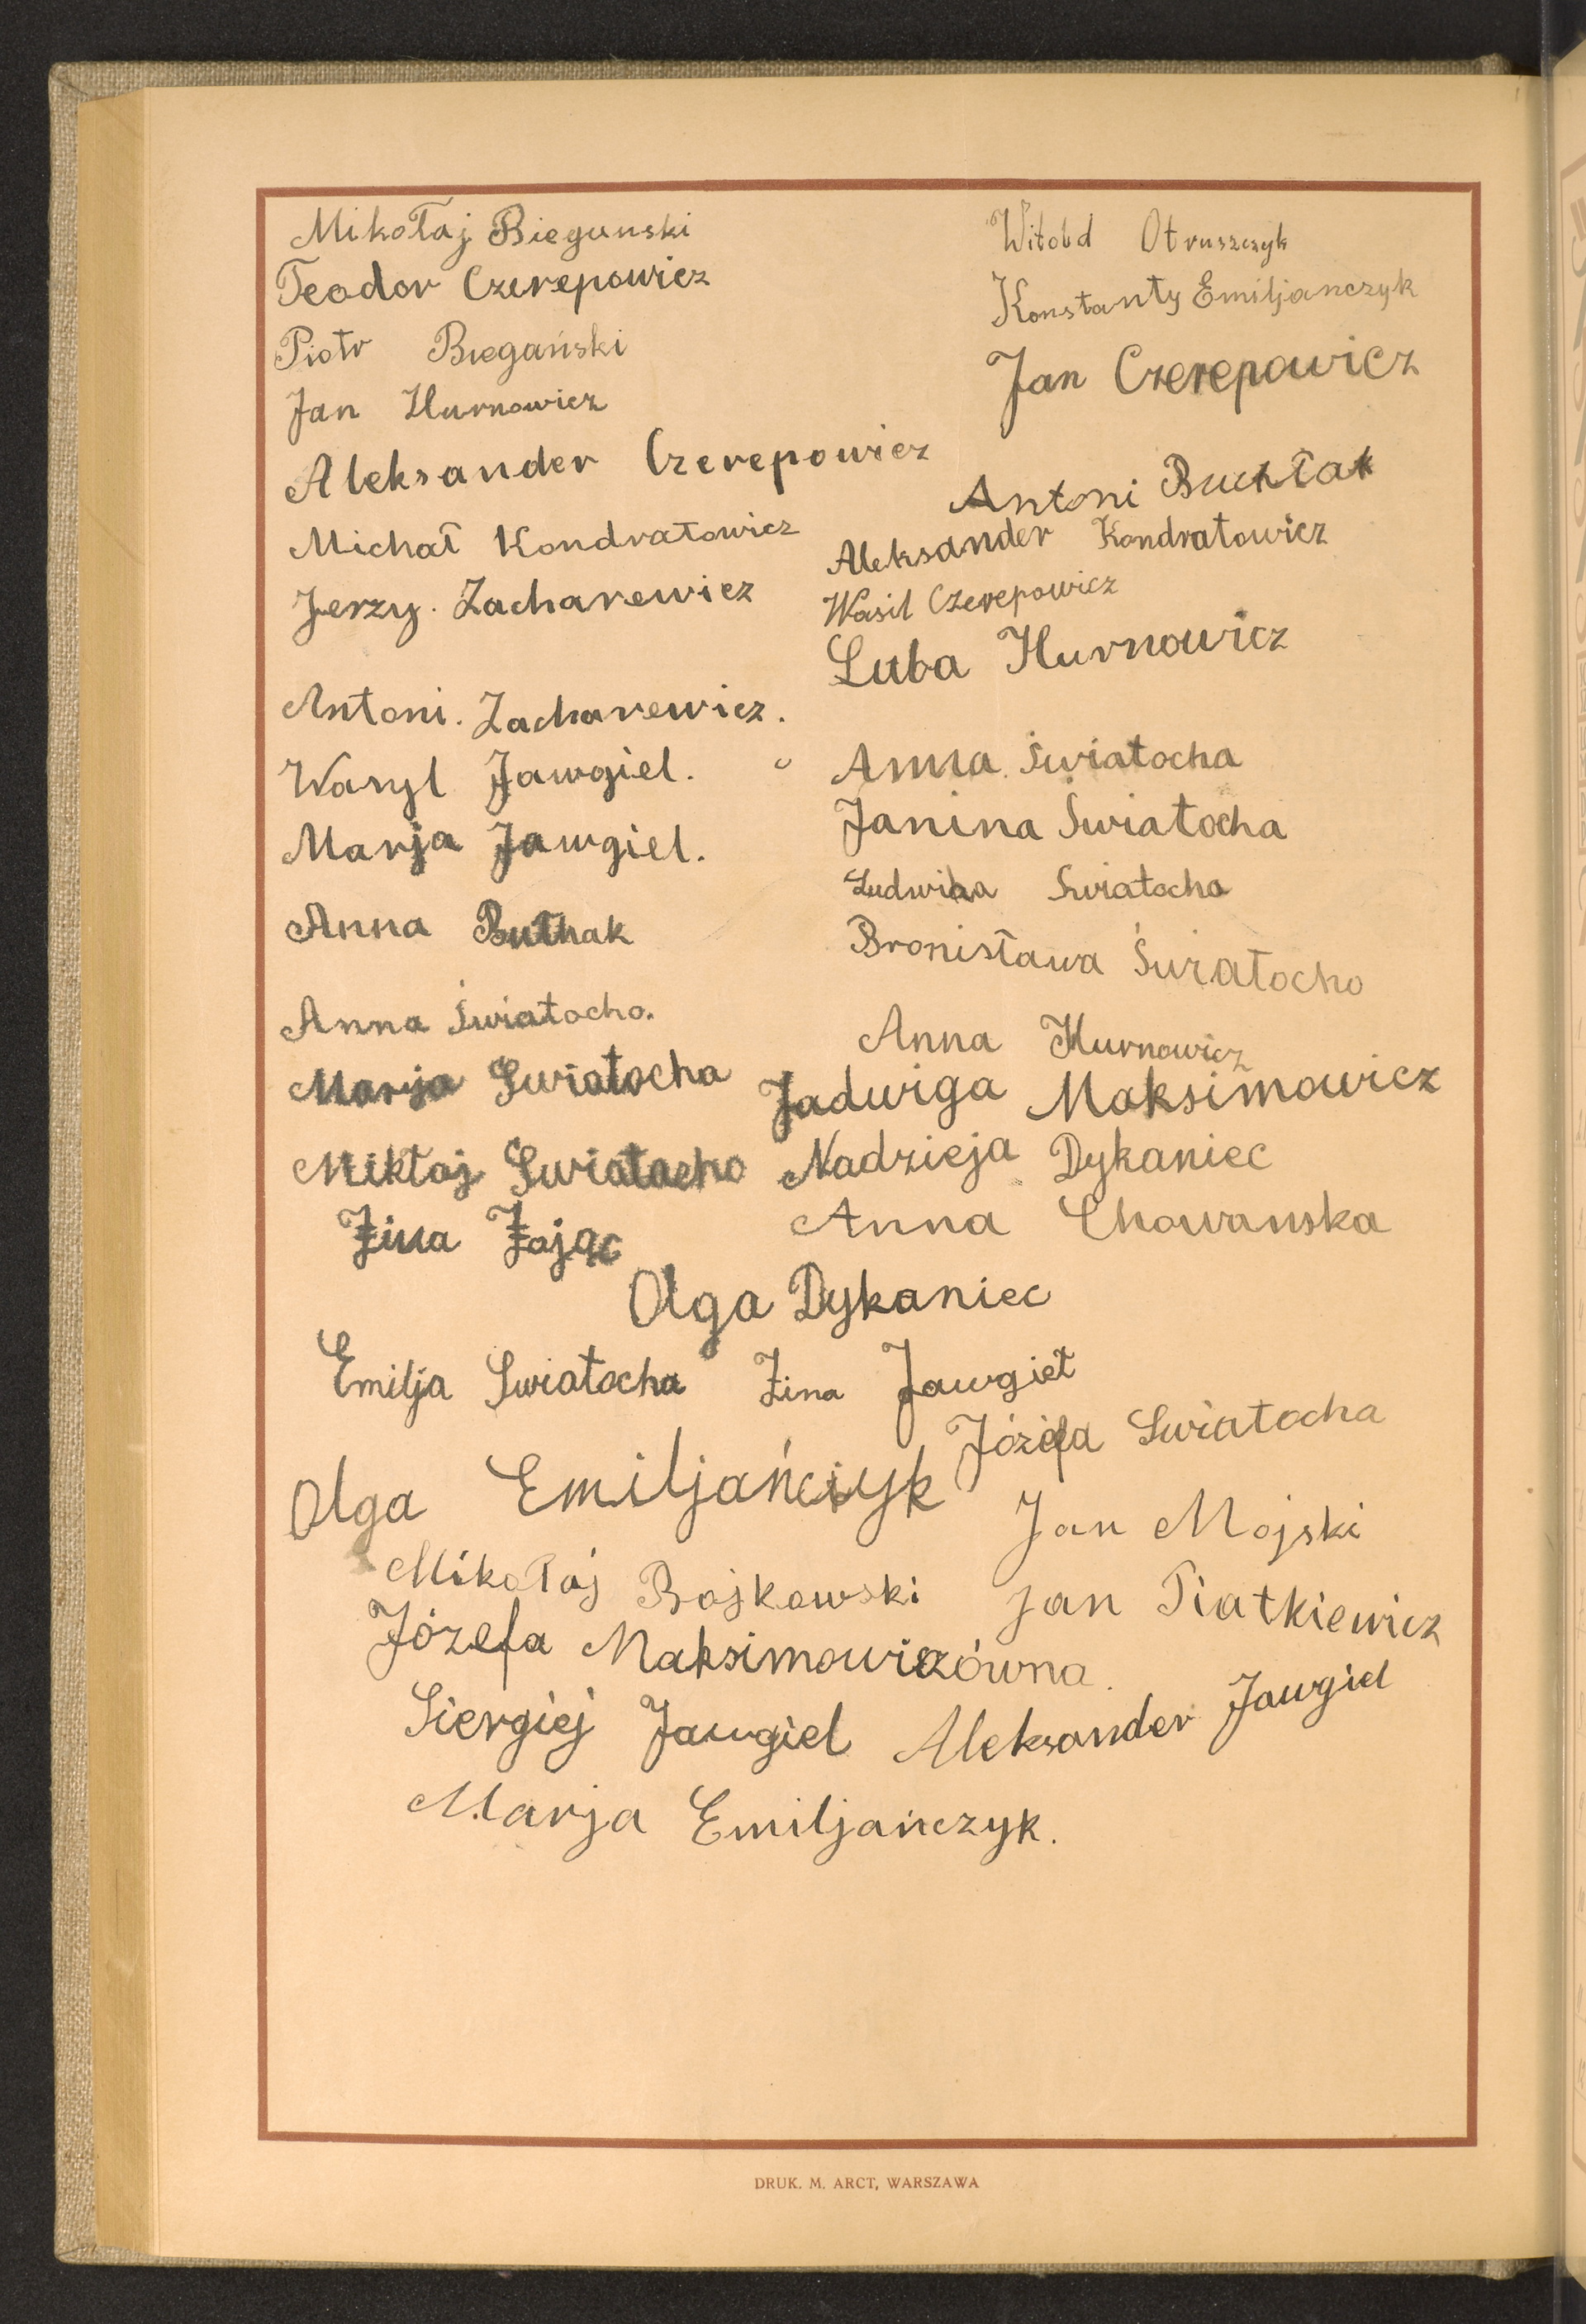 Mikołaj Biegunski
Teodor Czerepowicz
Piotr Biegański
Jan Hurnowicz
Aleksander Czerepowicz
Michał Kondratowicz
Jerzy. Zacharewicz
Antoni. Zacharewicz.
Wasyl Jawgiel.
Marja Jawgiel.
Anna
Anna Światocha.
Marja Swiatocha
Mikłaj Swiatocho
Zina Zając
Witold Otruszczyk
Konstanty Emiljanczyk
Jan Czerepowicz
Antoni
Aleksander Kondratowicz
Wasil Czerepowicz
Luba Hurnowicz
Anna Światocha
Janina Światocha
Ludwika Swiatocha
Bronisława Światocho
Anna Hurnowicz
Jadwiga Maksimowicz
Nadzieja Dykaniec
Anna Chowanska
Olga Dykaniec
Emilja Swiatocha Zina Jawgieł
Józefa Swiatocha
Olga Emiljańczyk
Jan Mojski
Mikołaj Bojkowski
Jan Piatkiewicz
Józefa Maksimowiczówna.
Siergiej Jawgiel Aleksander Jawgiel
Marja Emiljańczyk.
DRUK. M. ARCT, WARSZAWA